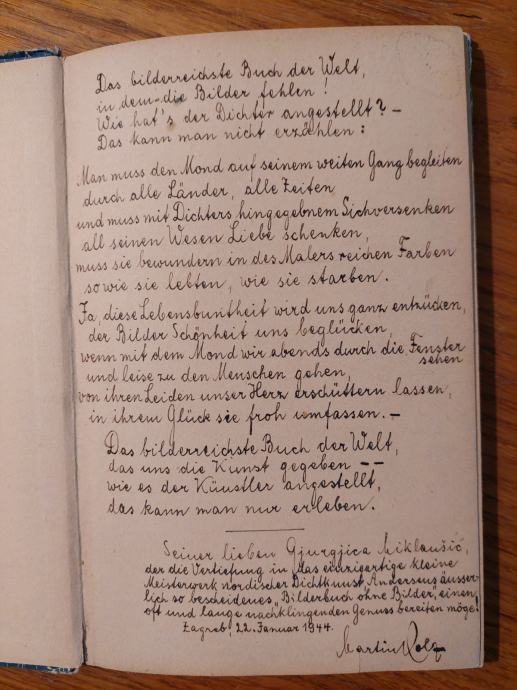 Das bilderreichste Buch der Welt,
in dem die Bilder fehlen!
Wie hat's der Dichter angestellt? –
Das kann man nicht erzählen:
Man muss den Mond auf seinem weiten Gang begleiten
durch alle Länder, alle Zeiten
und muss mit Dichters hingegebnem Sichversenken
all seinen Wesen Liebe schenken,
muss sie bewundern in des Malers reichen Farben
so wie sie lebten, wie sie starben.
Ja, diese Lebensbuntheit wird uns ganz entzücken,
der Bilder Schönheit uns beglücken,
wenn mit dem Mond wir abends durch die Fenster
sehen
und leise zu den Menschen gehen,
von ihren Leiden unser Herz erschüttern lassen,
in ihrem Glück sie froh umfassen. –
Das bilderreichste Buch der Welt,
das uns die Kunst gegeben – –
wie es der Künstler angestellt,
das kann man nur erleben.
Seiner lieben Gjurgjica Miklaušić,
der die Vertiefung in das einzigartige kleine
Meisterwerk nordischer Dichtkunst, Andersens äusser-
lich so bescheidenes „Bilderbuch ohne Bilder", einen
oft und lange nachklingenden Genuss bereiten möge!
Zagreb, 22. Januar 1944.
Martin